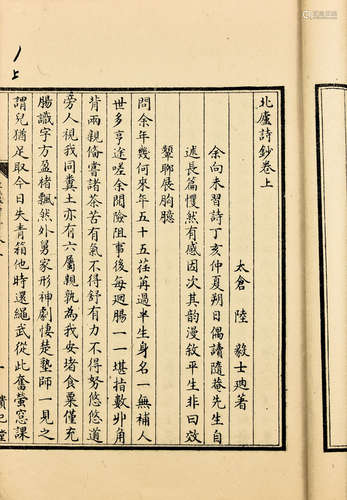 北廬詩鈔卷上
太倉 陸 毅士迆著
余向未習詩丁亥仲夏朔日偶讀隨庵先生自
述長篇慨然有感因次其韵漫敘平生非曰效
顰聊展胸臆
問余年幾何來年五十五荏苒過半生身名一無補人
世多亨途嗟余閱險阻事後每迴腸一一堪指數丱角
背兩親備嘗諸茶苦有氣不得舒有力不得努悠悠道
旁人視我同糞土亦有六屬親孰為我安堵食粟僅充
腸識字方盈楮飄然外舅家形神劇悽楚塾師一見之
謂兒猶足取今日失青箱他時還繩武從此奮螢窓課